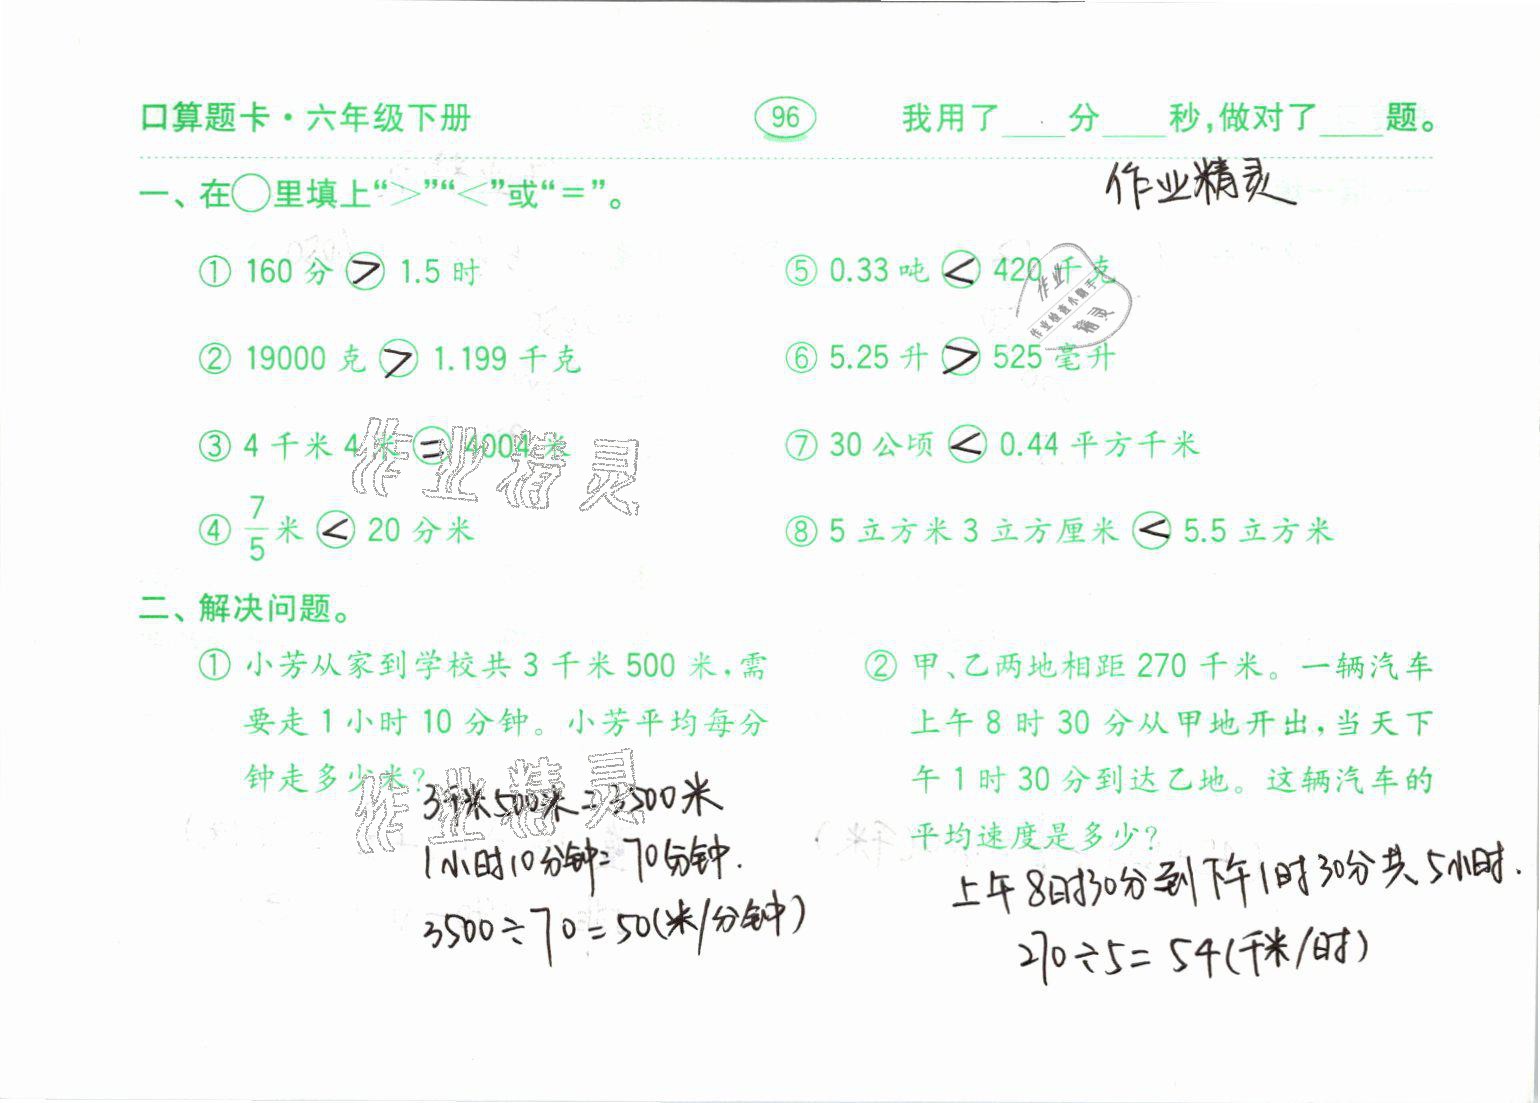 口算题卡·六年级下册
96
我用了____分____秒,做对了____题。
作业精灵
一、在○里填上“>”“<”或“=”。
① 160 分 > 1.5 时
⑤ 0.33 吨 < 420 千克
作业
作业检查小助手
精灵
② 19000 克 > 1.199 千克
⑥ 5.25 升 > 525 毫升
③ 4 千米 4 米 = 4004 米
⑦ 30 公顷 < 0.44 平方千米
作业精灵
④ 7/5 米 < 20 分米
⑧ 5 立方米 3 立方厘米 < 5.5 立方米
二、解决问题。
① 小芳从家到学校共 3 千米 500 米,需
要走 1 小时 10 分钟。小芳平均每分
钟走多少米?
作业精灵
3千米500米=3500米
1小时10分钟=70分钟.
3500÷70=50(米/分钟)
② 甲、乙两地相距 270 千米。一辆汽车
上午 8 时 30 分从甲地开出,当天下
午 1 时 30 分到达乙地。这辆汽车的
平均速度是多少?
上午8时30分到下午1时30分共5小时.
270÷5=54(千米/时)